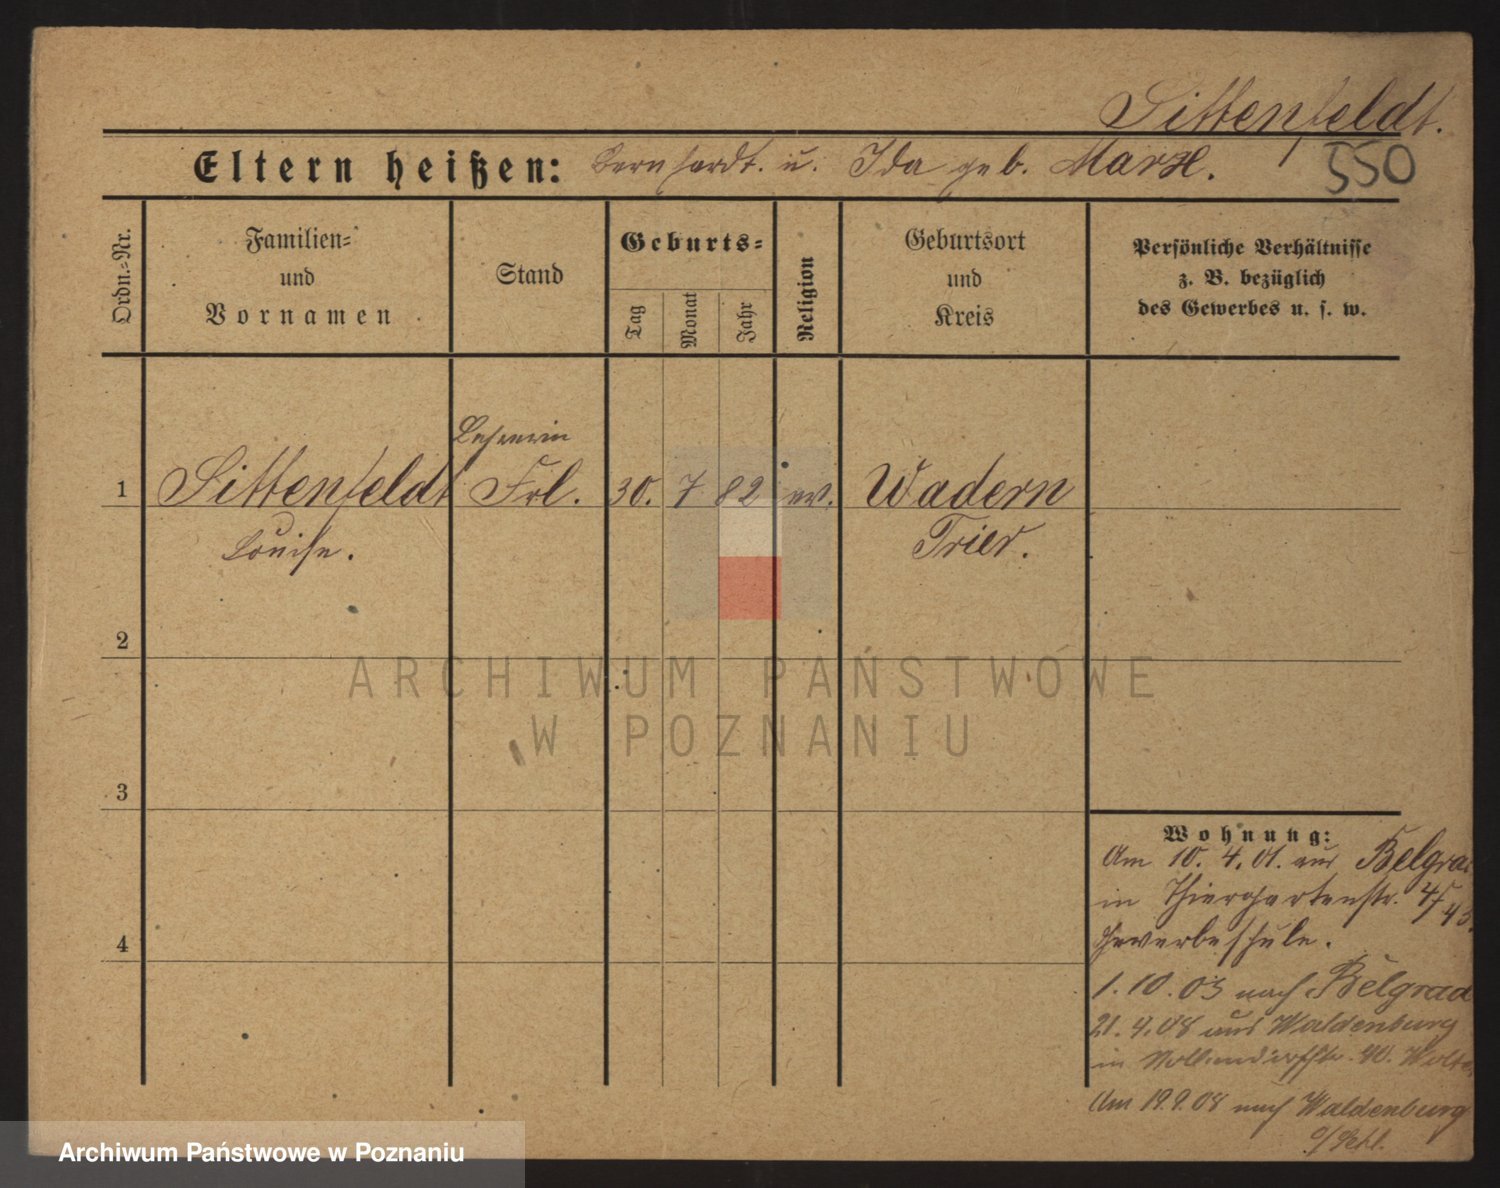 Sittenfeldt.
Eltern heißen: Bernhardt. u. Ida geb. Marx.
550
Ordn.-Nr.
Familien-
und
Vornamen
Stand
Geburts-
Tag
Monat
Jahr
Religion
Geburtsort
und
Kreis
Persönliche Verhältnisse
z. B. bezüglich
des Gewerbes u. s. w.
Lehrerin
1 Sittenfeldt Frl. 30. 7 82 ev. Wadern
Louise. Trier.
2
ARCHIWUM PAŃSTWOWE
W POZNANIU
3
Wohnung:
Am 10. 4. 01. aus Belgrad
in Thiergartenstr. 4/
43.
Gewerbeschule.
4
1. 10. 03 nach Belgrad
21. 4. 08 aus Waldenburg
in 40.
Am 19.9.08 nach Waldenburg
Archiwum Państwowe w Poznaniu